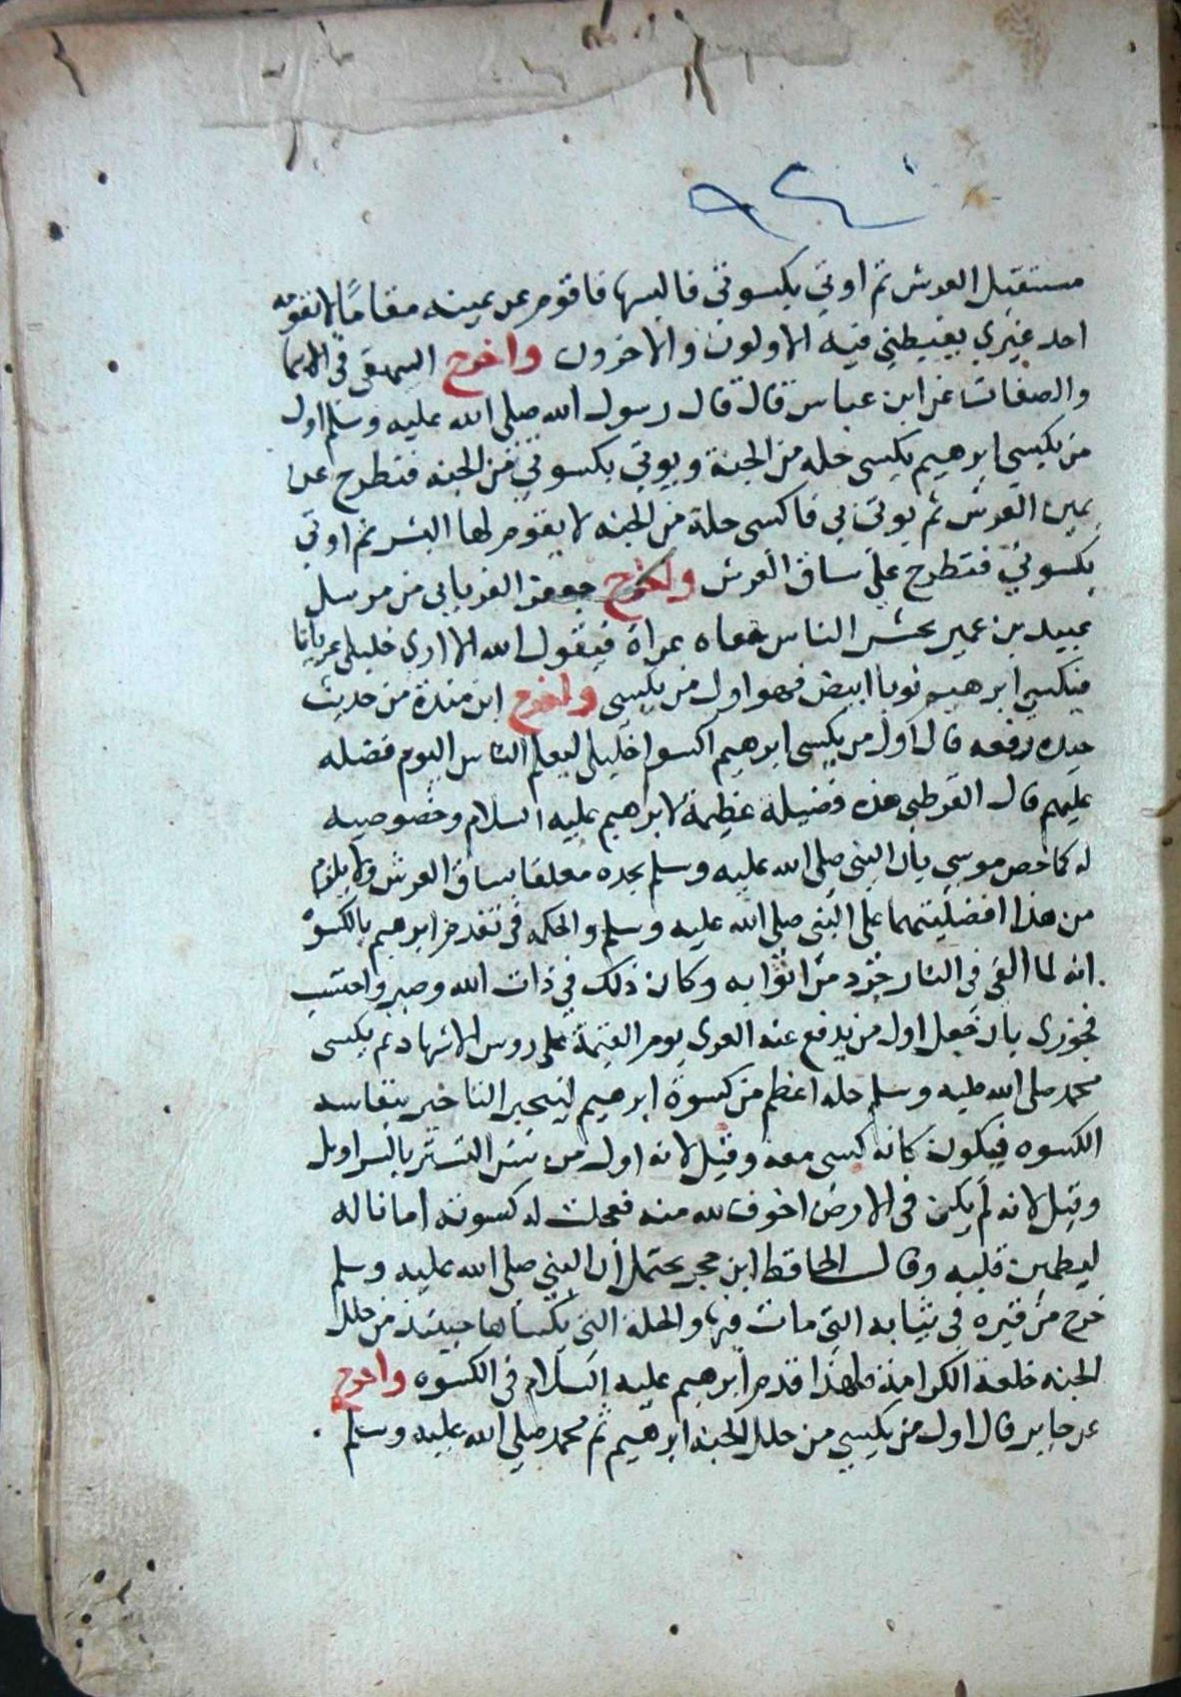 مستقبل العرش ثم اوتي بكسوتي فالبسها فاقوم عن يمينه مقاما لا يقومه
احد غيري يغبطني فيه الاولون والاخرون واخرج البيهقي في الاسما
والصفات عن ابن عباس قال قال رسول الله صلى الله عليه وسلم اول
من يكسي ابرهيم يكسى حله من الجنة ويوتي بكسوتي من الجنه فتطرح عن
يمين العرش ثم يوتى بي فاكسى حلة من الجنه لا يقوم لها البشر ثم اوتي
بكسوتي فتطرح علي ساق العرش واخرج جعفر الفريابى من مرسل
عبيد بن عمير يحشر الناس حفاه عراة فيقول الله الا ارى خليلى عريانا
فيكسى ابرهيم ثوبا ابيض فهو اول من يكسى واخرج ابن مندة من حديث
حيده رفعه قال اول من يكسى ابرهيم اكسوا خليلى ليعلم الناس اليوم فضله
عليهم قال القرطبى هذه فضيلة عظيمة لابرهيم عليه السلام وخصوصيه
له كما خص موسي بان النبى صلى الله عليه وسلم يجده معلقا بساق العرش ولا يلزم
من هذا افضليتهما على النبى صلى الله عليه وسلم والحكمه فى تقدم ابرهيم بالكسوة
انه لما القى فى النار جرد من اثوابه وكان ذلك في ذات الله وصبر واحتسب
فجوزى بان جعل اول من يدفع عنه العرى يوم القيمة على روس الاشهاد ثم يكسى
محمد صلى الله عليه وسلم حله اعظم من كسوة ابرهيم لينجبر التاخير بنفاسه
الكسوه فيكون كانه كسى معه وقيل لانه اول من سن التستر بالسراويل
وقيل لانه لم يكن فى الارض اخوف لله منه فعجلت له كسوته امانا له
ليطمين قلبه وقال الحافظ ابن حجر يحتمل ان النبي صلى الله عليه وسلم
خرج من قبره في ثيابه التي مات فيها والحلة التى يكساها حينئذ من حلل
الجنه خلعة الكرامة فلهذا قدم ابرهيم عليه السلام فى الكسوه واخرج
عن جابر قال اول من يكسي من حلل الجنه ابرهيم ثم محمد صلي الله عليه وسلم